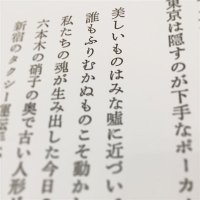 東京は隠すのが下手なポーカ
美しいものはみな嘘に近づいて
誰もふりむかぬものこそ動かし
私たちの魂が生み出した今日の
六本木の硝子の奥で古い人形が
新宿のタクシー運転